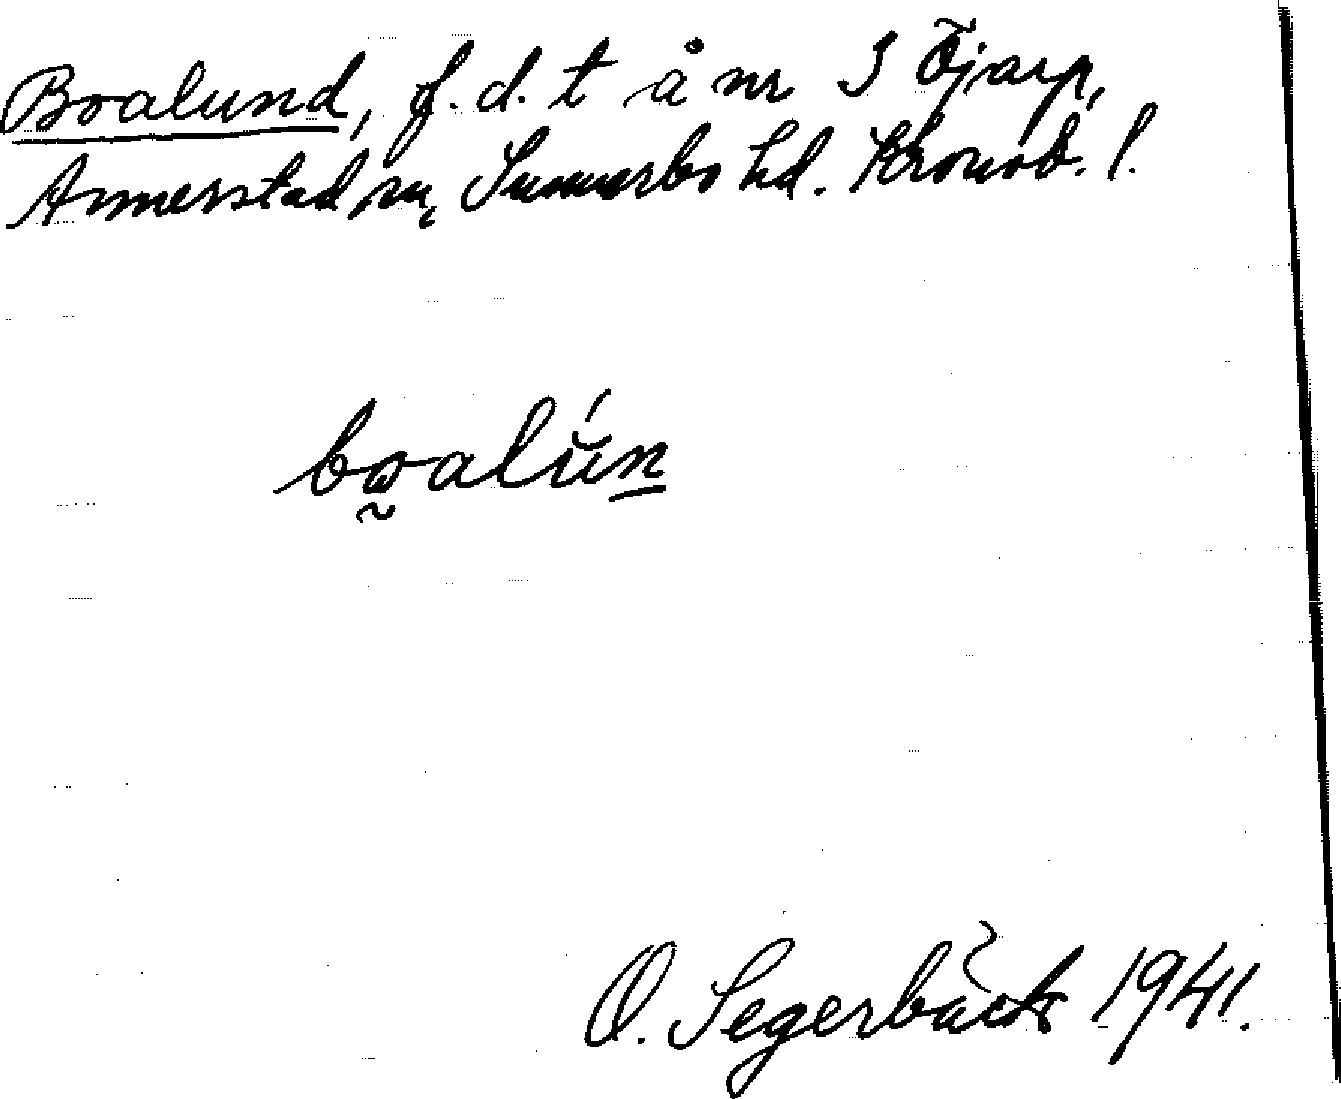 Boalund, f. d. t å nr 3 Öjarp,
Annerstad sn, Sunnerbo hd. Kronob. l.
bωalún
O. Segerbäck 1941.